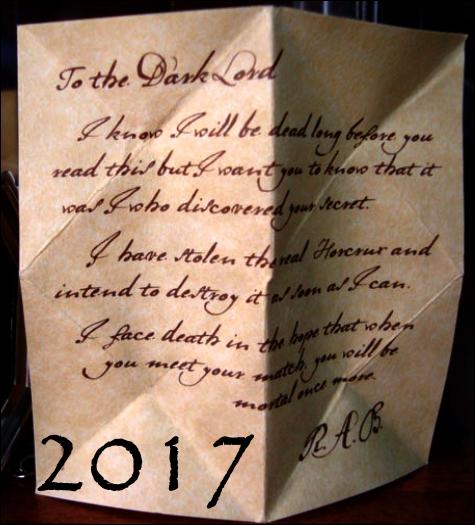 To the Dark Lord
I know I will be dead long before you
read this but I want you to know that it
was I who discovered your secret.
I have stolen the real Horcrux and
intend to destroy it as soon as I can.
I face death in the hope that when
you meet your match, you will be
mortal once more.
R.A.B.
2017